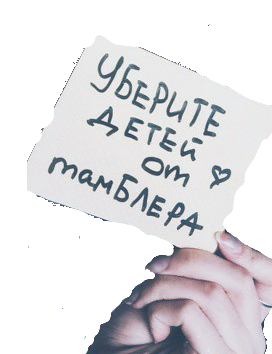 УБЕРИТЕ
ДЕТЕЙ
От ♡
тамБЛЕРА